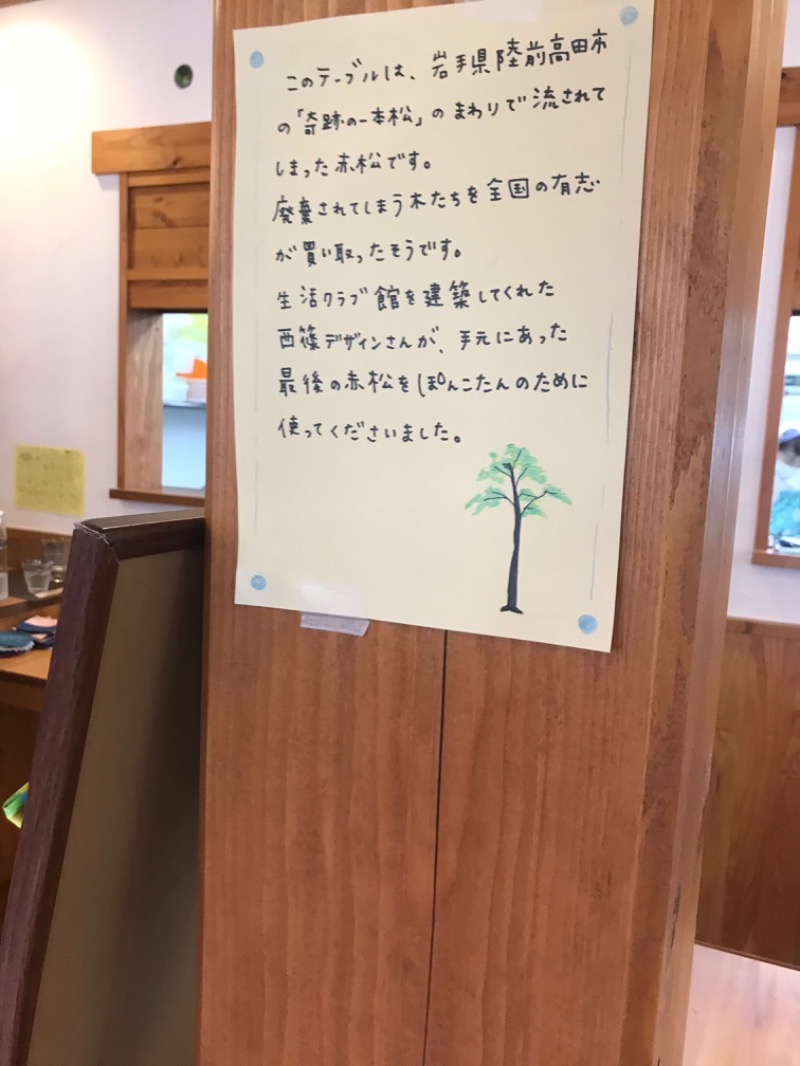 このテーブルは、岩手県陸前高田市
の「奇跡の一本松」のまわりで流されて
しまった赤松です。
廃棄されてしまう木たちを全国の有志
が買い取ったそうです。
生活クラブ館を建築してくれた
西篠デザインさんが、手元にあった
最後の赤松をぽんこたんのために
使ってくださいました。